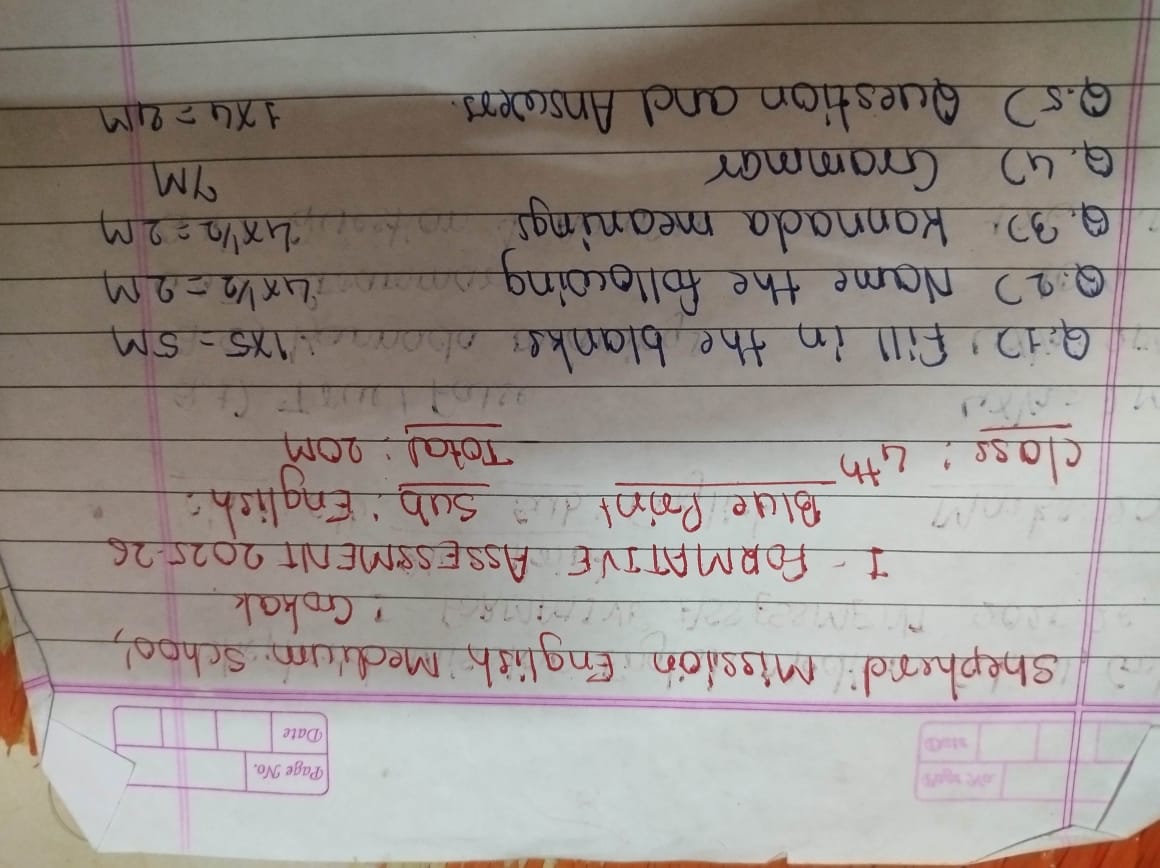 Page No.
Date
Shepherd Mission English Medium School,
: Gokak
I - FORMATIVE ASSESSMENT 2025-26
Blue Point Sub : English :
Class : 4th Total : 20M
Q.1) Fill in the blanks 1x5=5M
Q.2) Name the following 4x1/2=2M
Q.3) Kannada meanings 4x1/2=2M
Q.4) Grammar 7M
Q.5) Question and Answers. 1x4=4M